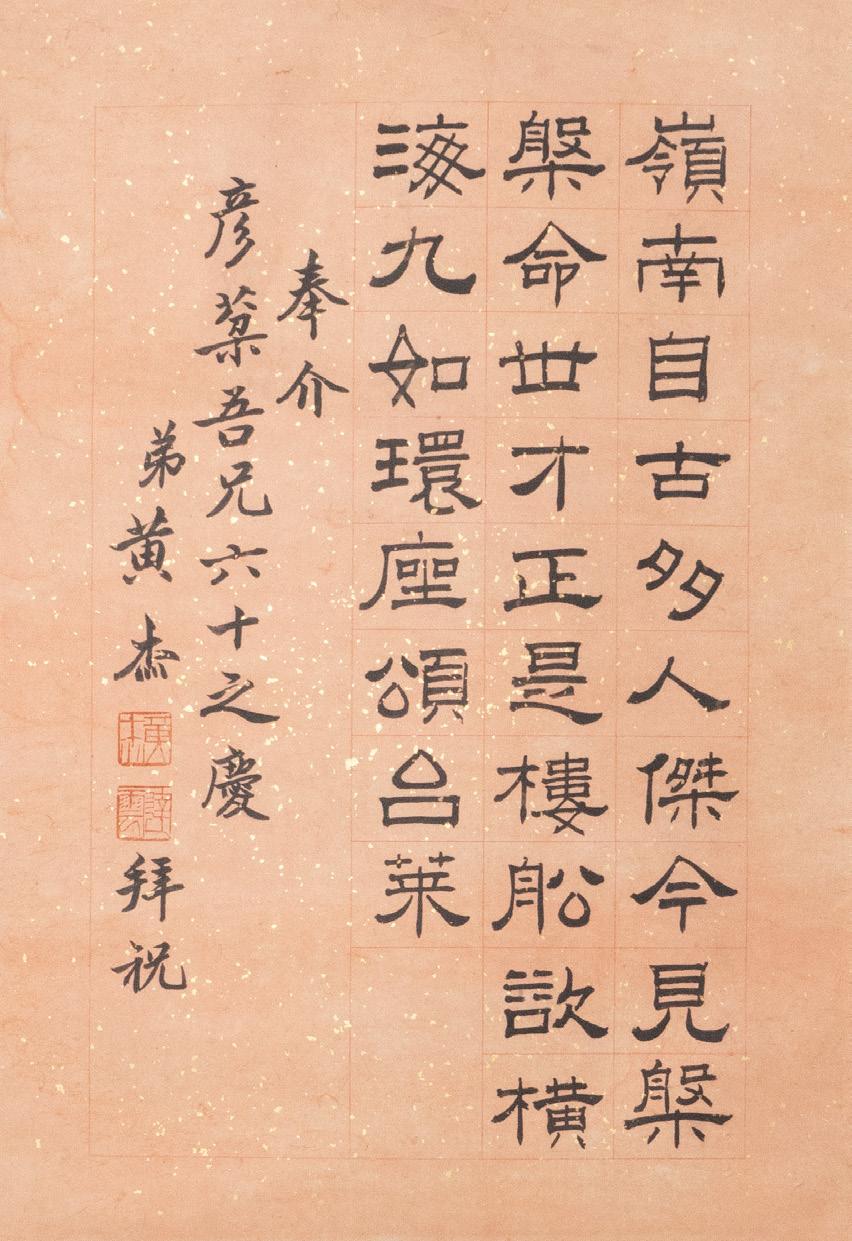 嶺南自古多人傑今見槃
槃命世才正是樓船欲橫
海九如環座頌台萊
奉介
彥棻吾兄六十之慶
弟黃杰
黃杰
達雲
拜祝